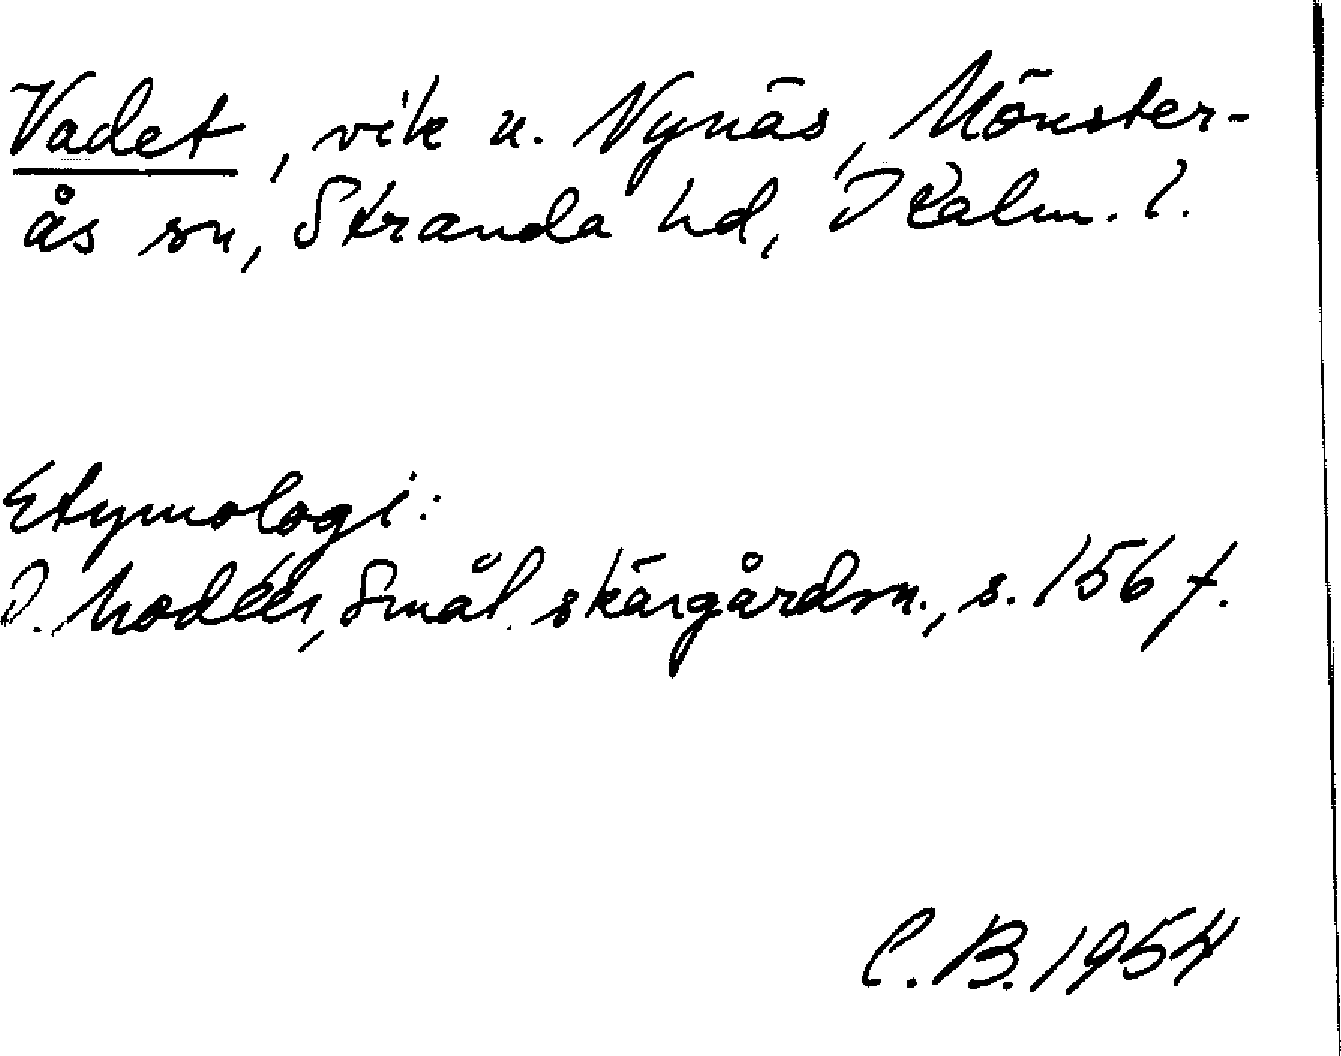 Vadet, vik n. Nynäs, Mönster-
ås sn, Stranda hd, Kalm. l.
Etymologi:
I. Modéer, Smål. skärgårdsn., s. 156 f.
C. B. 1954